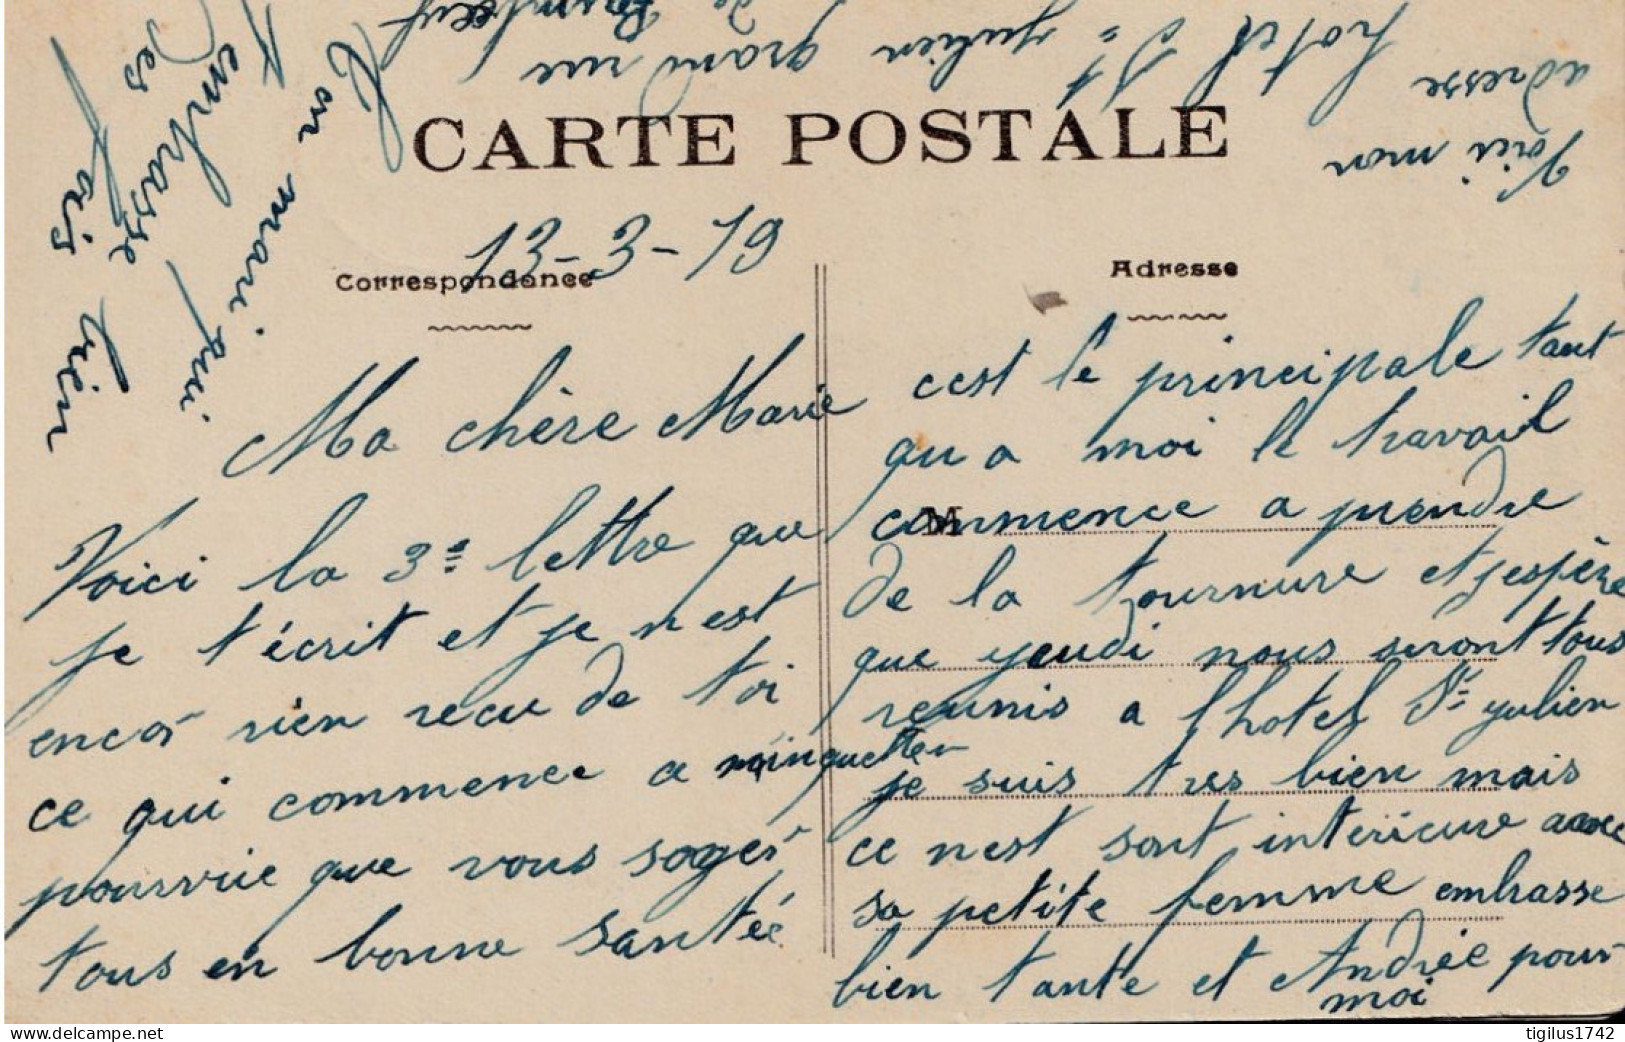 CARTE POSTALE
13-3-19
Correspondance
Adresse
M
Ma chère Marie
Voici la 3e lettre que
je t'écrit et je n est
encor rien recu de toi
ce qui commence a minquetter
pourvue que vous soyés
tous en bonne santée
cest le principale tant
qu a moi le travail
commence a prendre
de la tournure et jespère
que yeudi nous seront tous
reunis a lhotel St yulien
je suis tres bien mais
ce nest sont interieure avec
sa petite femme embrasse
bien tante et Andrée pour
moi
Ton mari qui
t embrasse
des
fois bien
Voici mon
adresse
hotel St yulien grand rue
de
tigilus1742